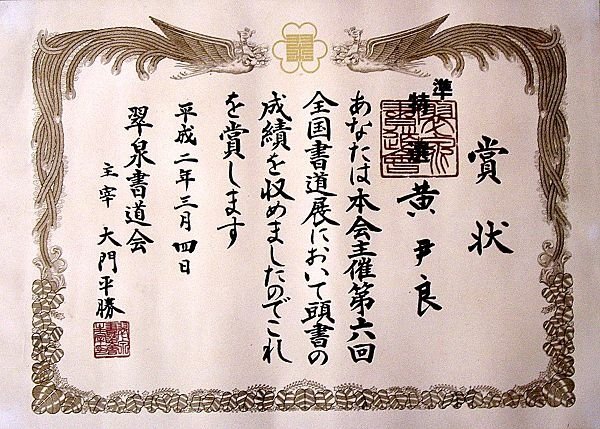 賞状
準特選 黄尹良
あなたは本会主催第六回
全国書道展において頭書の
成績を収めましたのでこれ
を賞します
平成二年三月四日
翠泉書道会
主宰 大門平勝